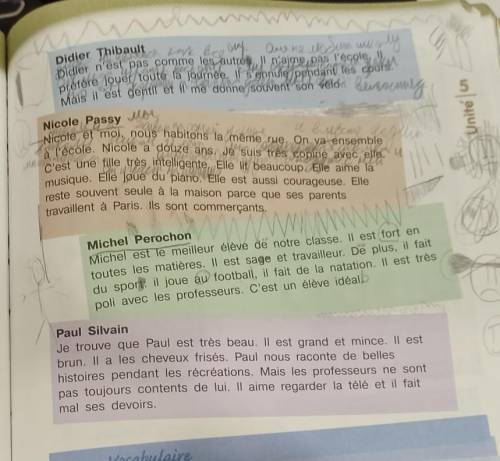 Didier Thibault
Didier n'est pas comme les autres. Il n'aime pas l'école. Il
préfère jouer toute la journée. Il s'ennuie pendant les cours.
Mais il est gentil et il me donne souvent son vélo.
Unité 5
Nicole Passy
Nicole et moi, nous habitons la même rue. On va ensemble
à l'école. Nicole a douze ans. Je suis très copine avec elle.
C'est une fille très intelligente. Elle lit beaucoup. Elle aime la
musique. Elle joue du piano. Elle est aussi courageuse. Elle
reste souvent seule à la maison parce que ses parents
travaillent à Paris. Ils sont commerçants.
Michel Perochon
Michel est le meilleur élève de notre classe. Il est fort en
toutes les matières. Il est sage et travailleur. De plus, il fait
du sport. il joue au football, il fait de la natation. Il est très
poli avec les professeurs. C'est un élève idéal.
Paul Silvain
Je trouve que Paul est très beau. Il est grand et mince. Il est
brun. Il a les cheveux frisés. Paul nous raconte de belles
histoires pendant les récréations. Mais les professeurs ne sont
pas toujours contents de lui. Il aime regarder la télé et il fait
mal ses devoirs.
Vocabulaire